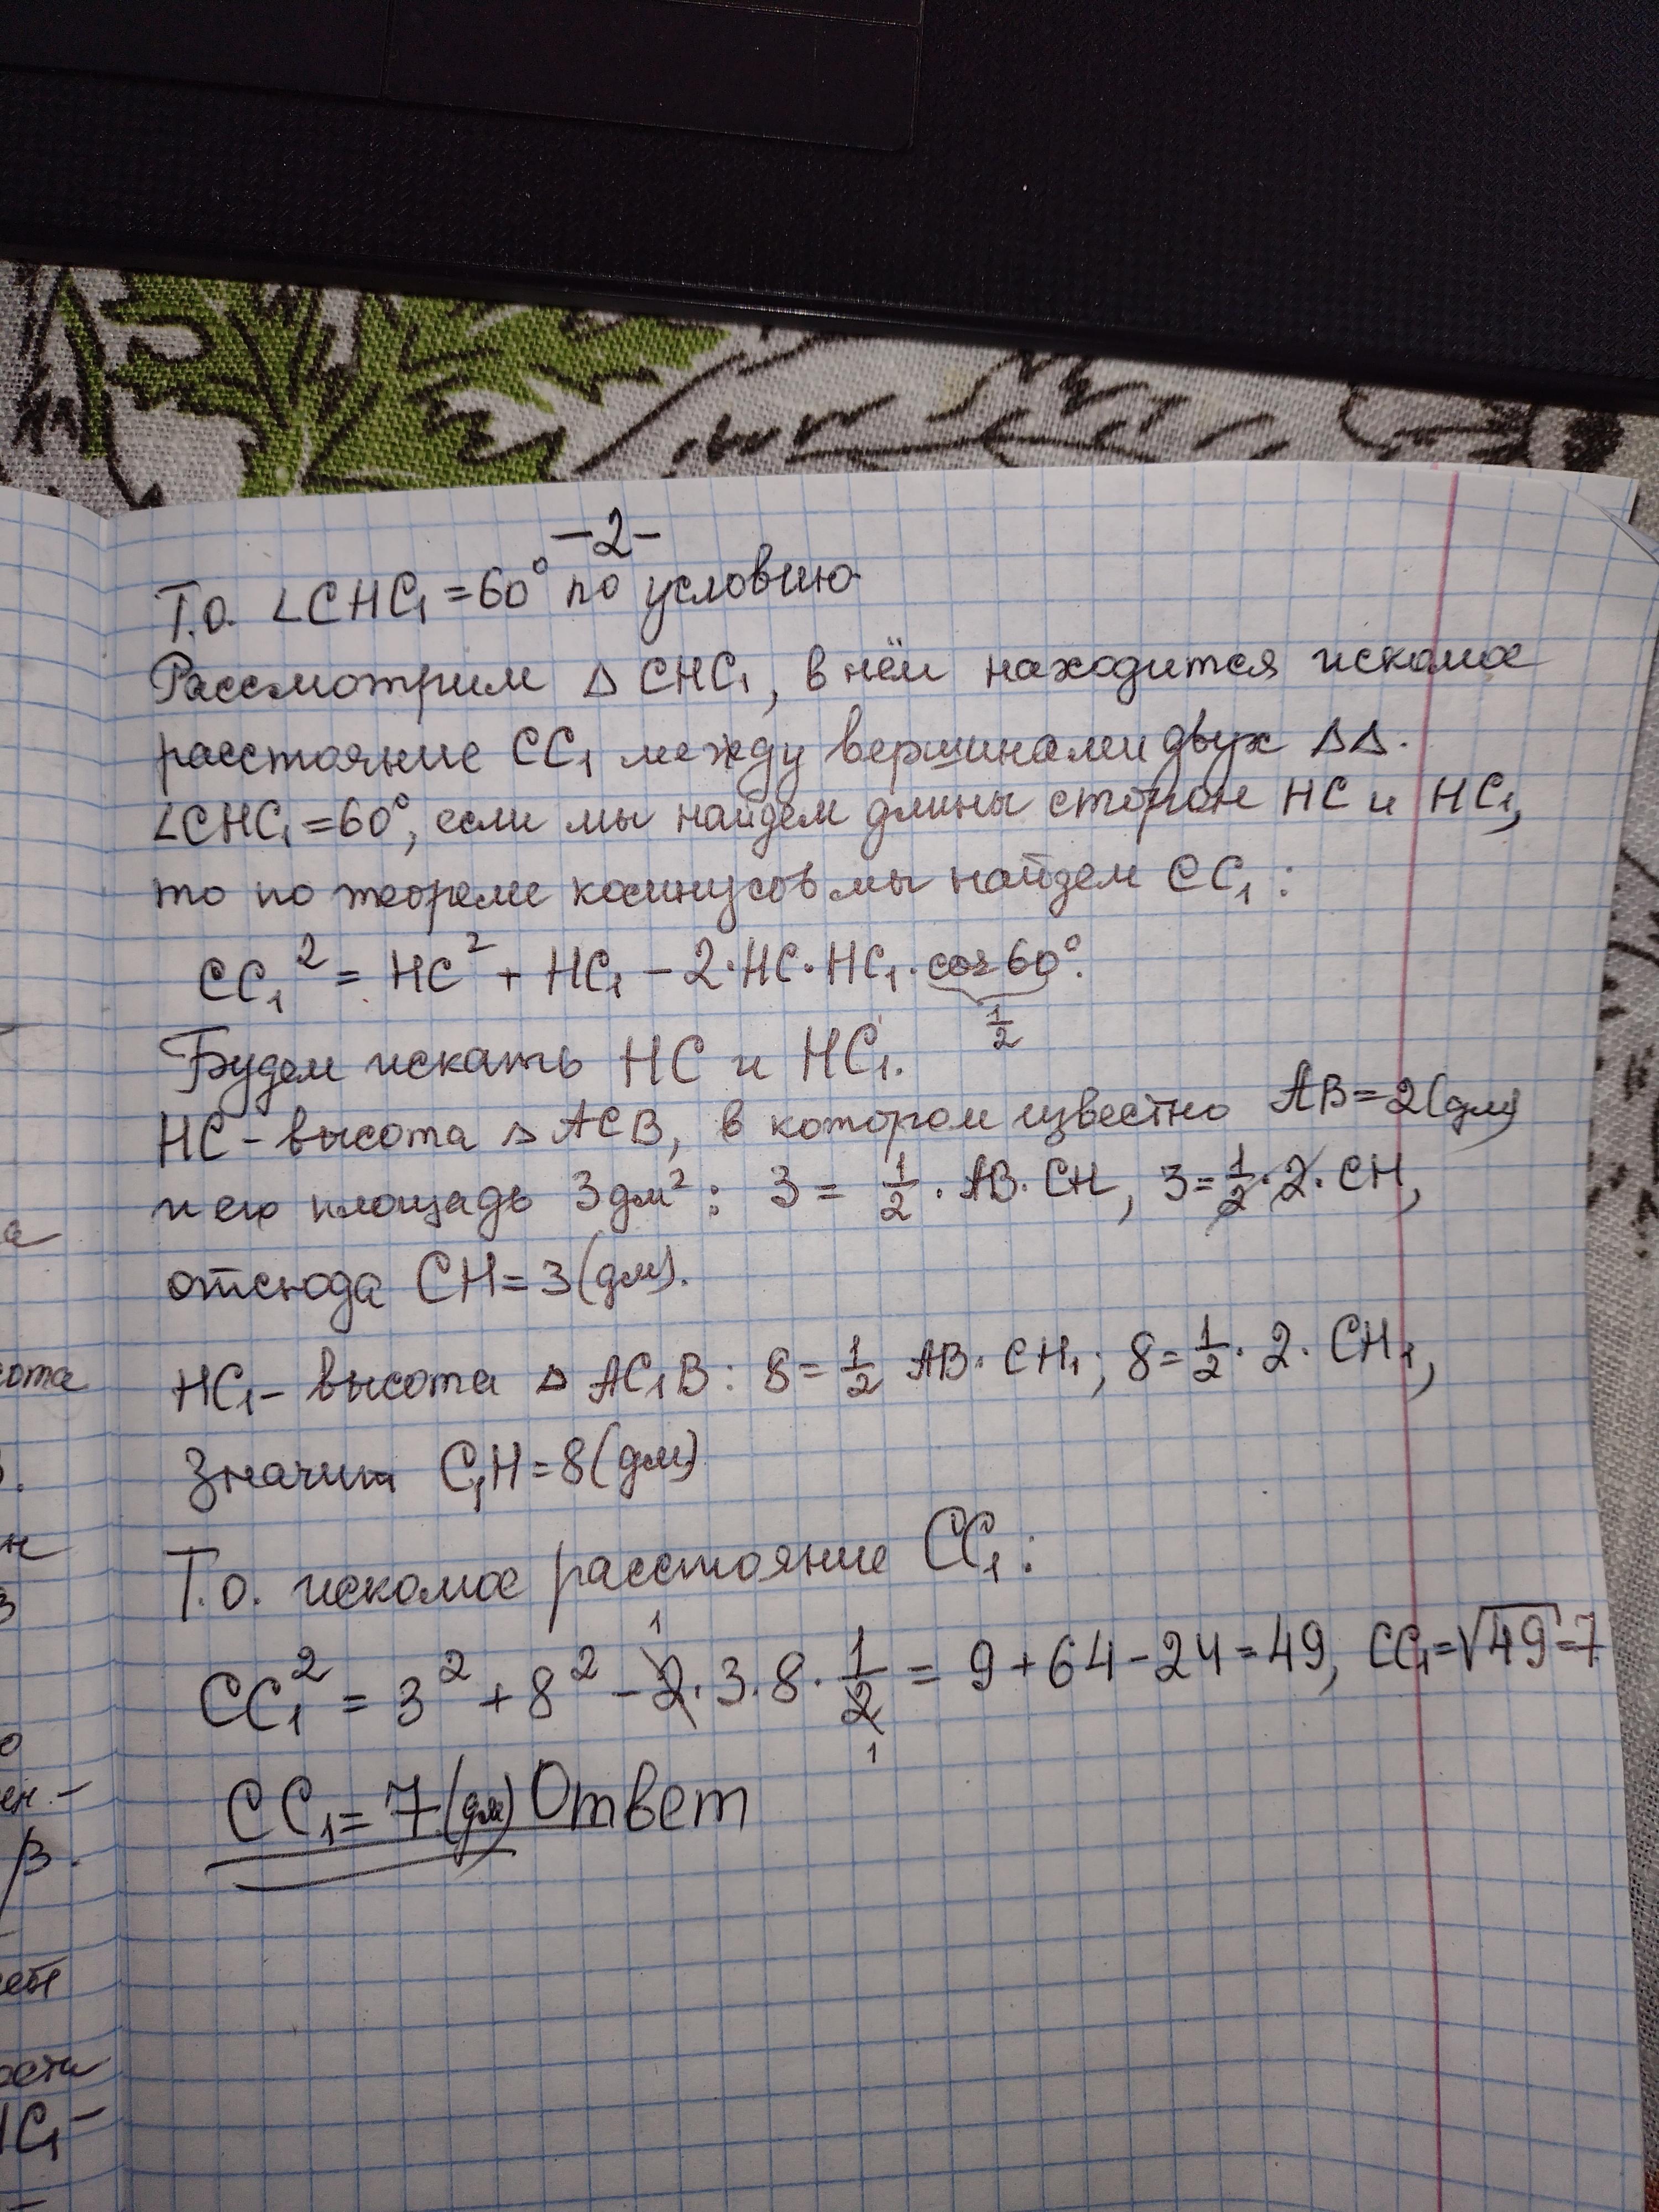 -2-
Т.о. ∠CHC₁ = 60° по условию
Рассмотрим △ CHC₁, в нём находится искомое
расстояние CC₁ между вершинами двух △△.
∠CHC₁ = 60°, если мы найдем длины сторон HC и HC₁,
то по теореме косинусов мы найдем CC₁ :
CC₁² = HC² + HC₁ - 2·HC·HC₁·cos60°.
1/2
Будем искать HC и HC₁.
HC - высота △ ACB, в котором известно AB=2(дм)
и его площадь 3дм² : 3 = 1/2 · AB · CH, 3 = 1/2 · 2 · CH,
отсюда CH = 3(дм).
HC₁ - высота △ AC₁B : 8 = 1/2 AB · CH₁ ; 8 = 1/2 · 2 · CH₁,
Значит C₁H = 8(дм)
Т.о. искомое расстояние CC₁ :
1
CC₁² = 3² + 8² - 2·3·8·1/2 = 9+64-24=49, CC₁=√49=7
1
CC₁ = 7(дм) Ответ
а
сота
н
з
о
ен.-
β.
ости
HC₁-